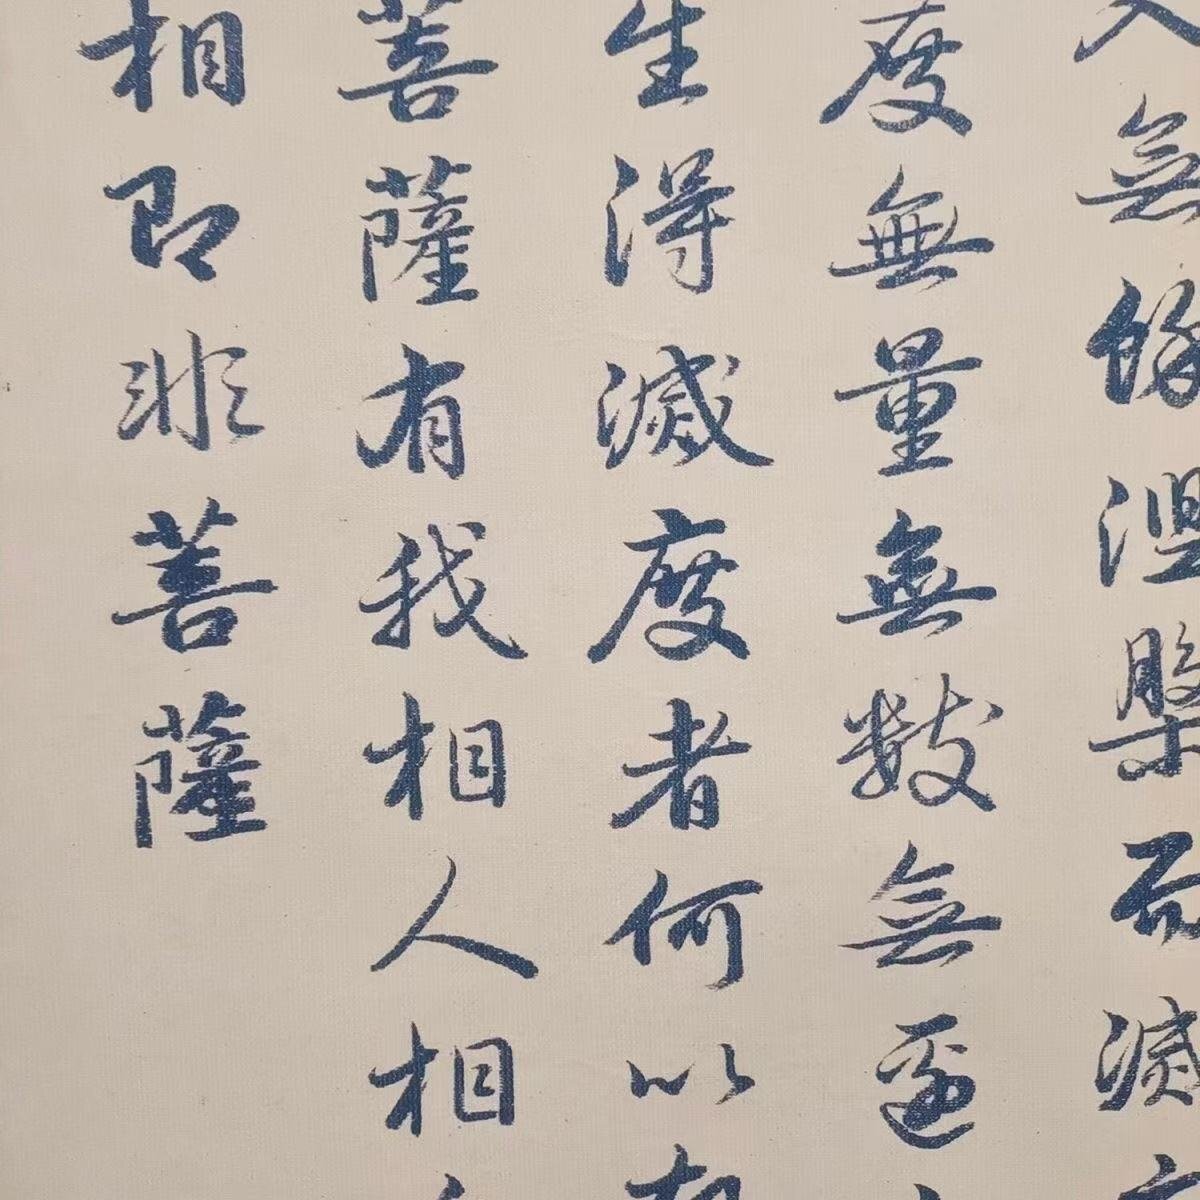 入無餘涅槃而滅度
度無量無數無邊
生得滅度者何以故
菩薩有我相人相
相即非菩薩